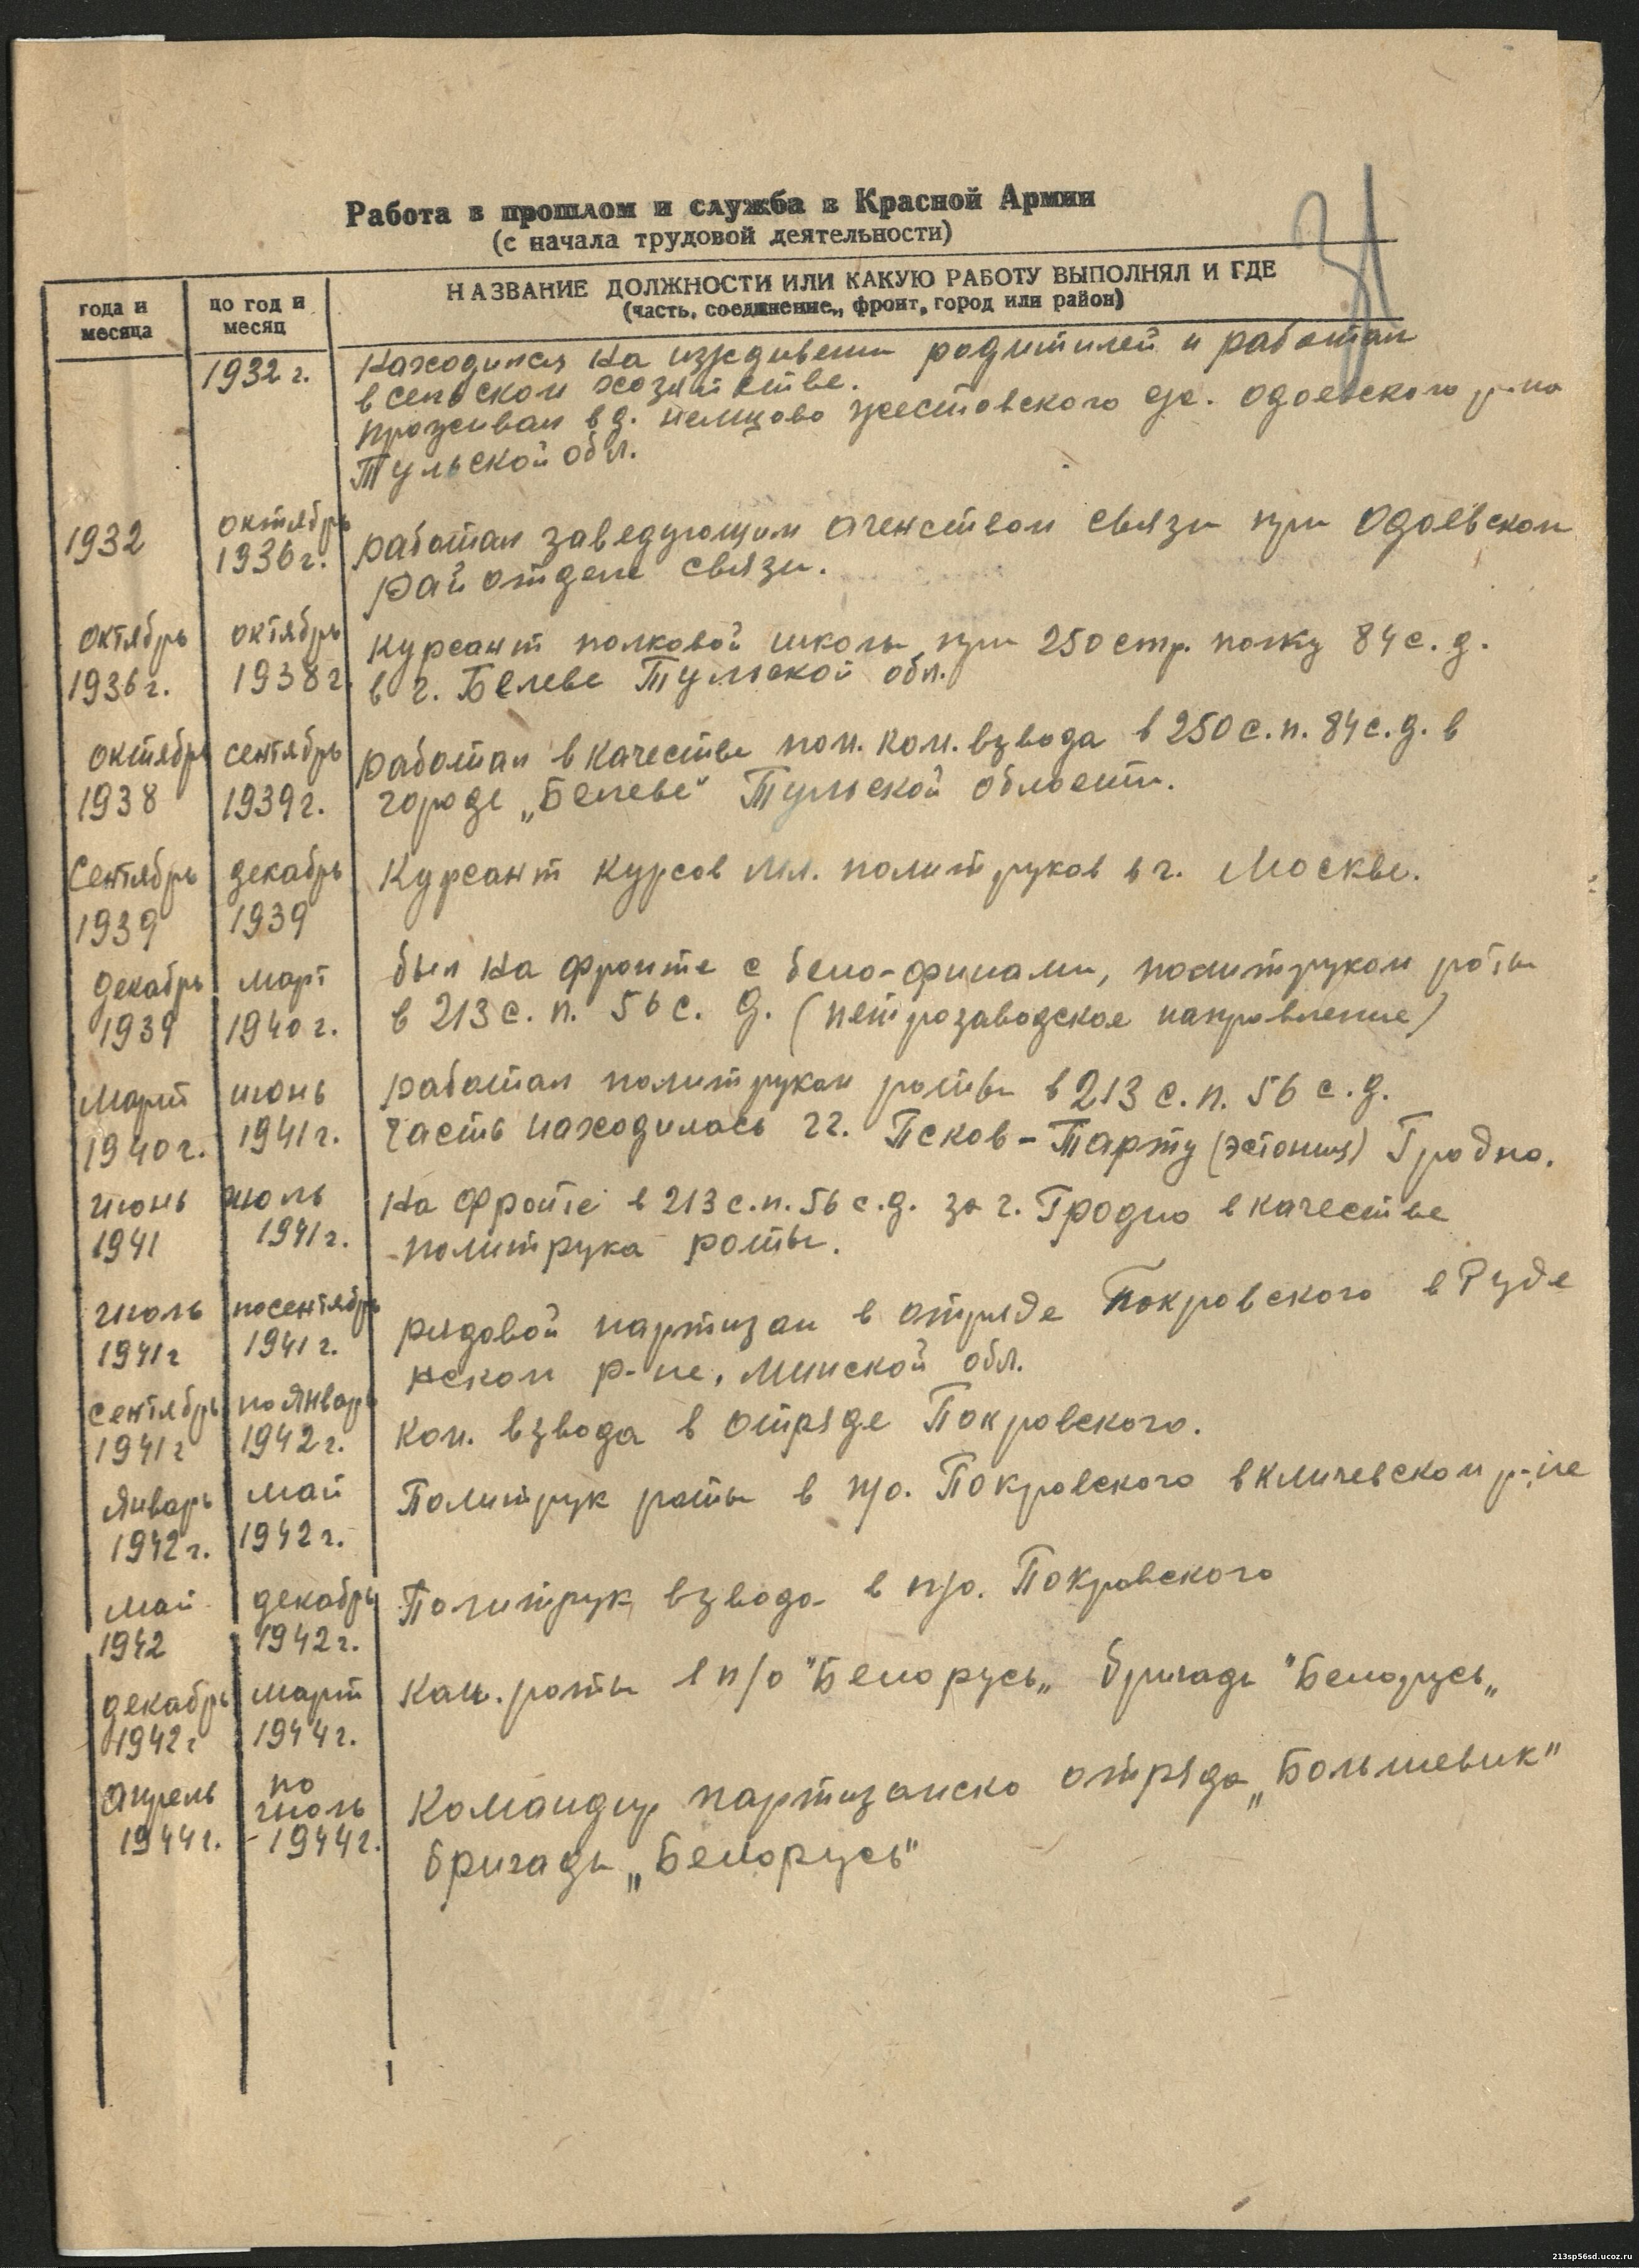 31
Работа в прошлом и служба в Красной Армии
(с начала трудовой деятельности)
года и месяца
по год и месяц
НАЗВАНИЕ ДОЛЖНОСТИ ИЛИ КАКУЮ РАБОТУ ВЫПОЛНЯЛ И ГДЕ
(часть, соединение, фронт, город или район)
1932 г.
Находился на иждивении родителей и работал
в сельском хозяйстве.
проживал в д. Немцово Жестовского с/с. Одоевского р-на
Тульской обл.
1932
октябрь
1936 г.
работал заведующим агенством связи при Одоевском
райотделе связи.
октябрь
1936 г.
октябрь
1938 г.
курсант полковой школы при 250 стр. полку 84 с. д.
в г. Белеве Тульской обл.
октябрь
1938
сентябрь
1939 г.
работал в качестве пом. ком. взвода в 250 с. п. 84 с. д. в
городе „Белеве" Тульской области.
Сентябрь
1939
декабрь
1939
Курсант курсов мл. политруков в г. Москве.
декабрь
1939
март
1940 г.
был на фронте с бело-финами, политруком роты
в 213 с. п. 56 с. д. (петрозаводское направление)
март
1940 г.
июнь
1941 г.
работал политруком роты в 213 с. п. 56 с. д.
часть находилась гг. Псков-Тарту (Эстония) Гродно.
июнь
1941
июль
1941 г.
На фронте в 213 с. п. 56 с. д. за г. Гродно в качестве
политрука роты.
июль
1941 г
по сентябрь
1941 г.
рядовой партизан в отряде Покровского в Руде
нском р-не, Минской обл.
сентябрь
1941 г
по январь
1942 г.
ком. взвода в отряде Покровского.
Январь
1942 г.
май
1942 г.
Политрук роты в п/о. Покровского в Кличевском р-не
май
1942
декабрь
1942 г.
Политрук взвода в п/о. Покровского
декабрь
1942 г
март
1944 г.
Ком. роты в п/о "Белорусь„ бригады "Белорусь„
Апрель
1944 г.
по
июль
1944 г.
Командир партизанско отряда „Большевик"
бригады „Белорусь"
213sp56sd.ucoz.ru